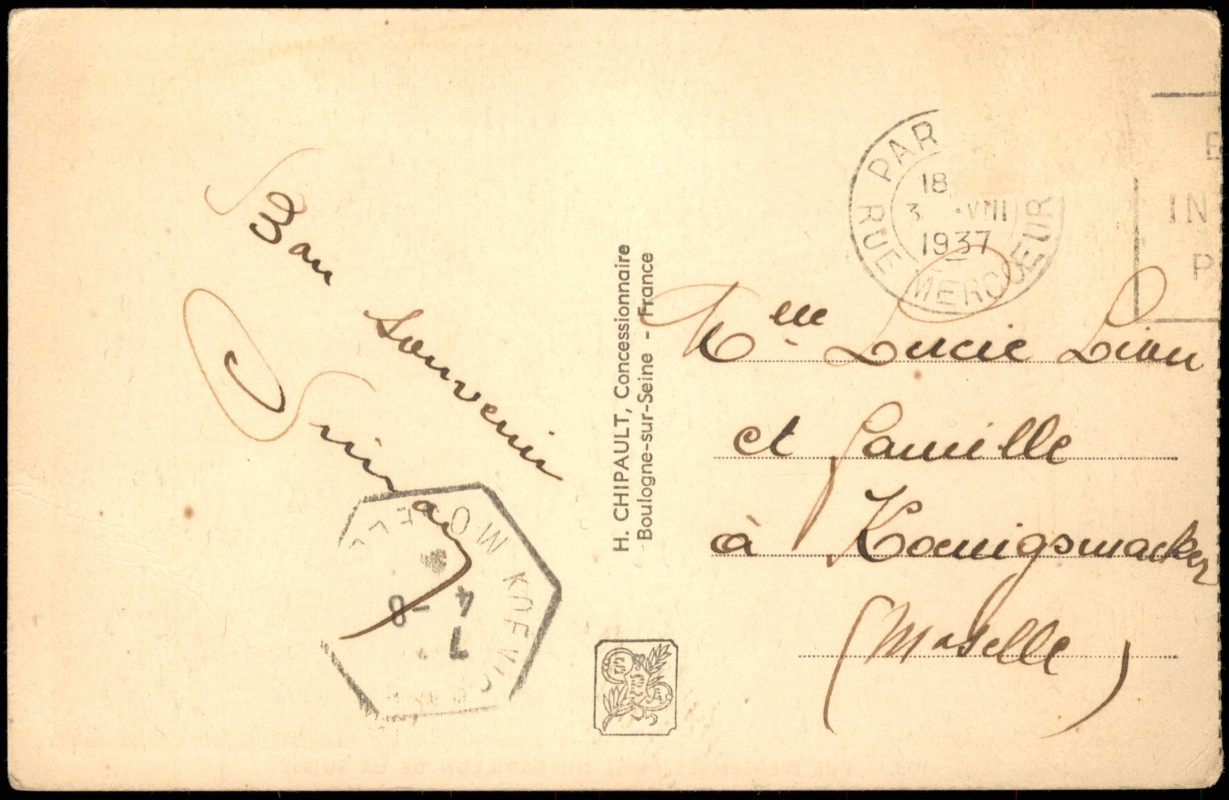 Bon souvenir
H. CHIPAULT, Concessionnaire
Boulogne-sur-Seine - France
PAR
RUE MERCŒUR
18
3 ·VIII
1937
IN
P
Mlle Lucie Lion
et famille
à Kœnigsmacker
(Moselle)
KOE
MO
4 -8